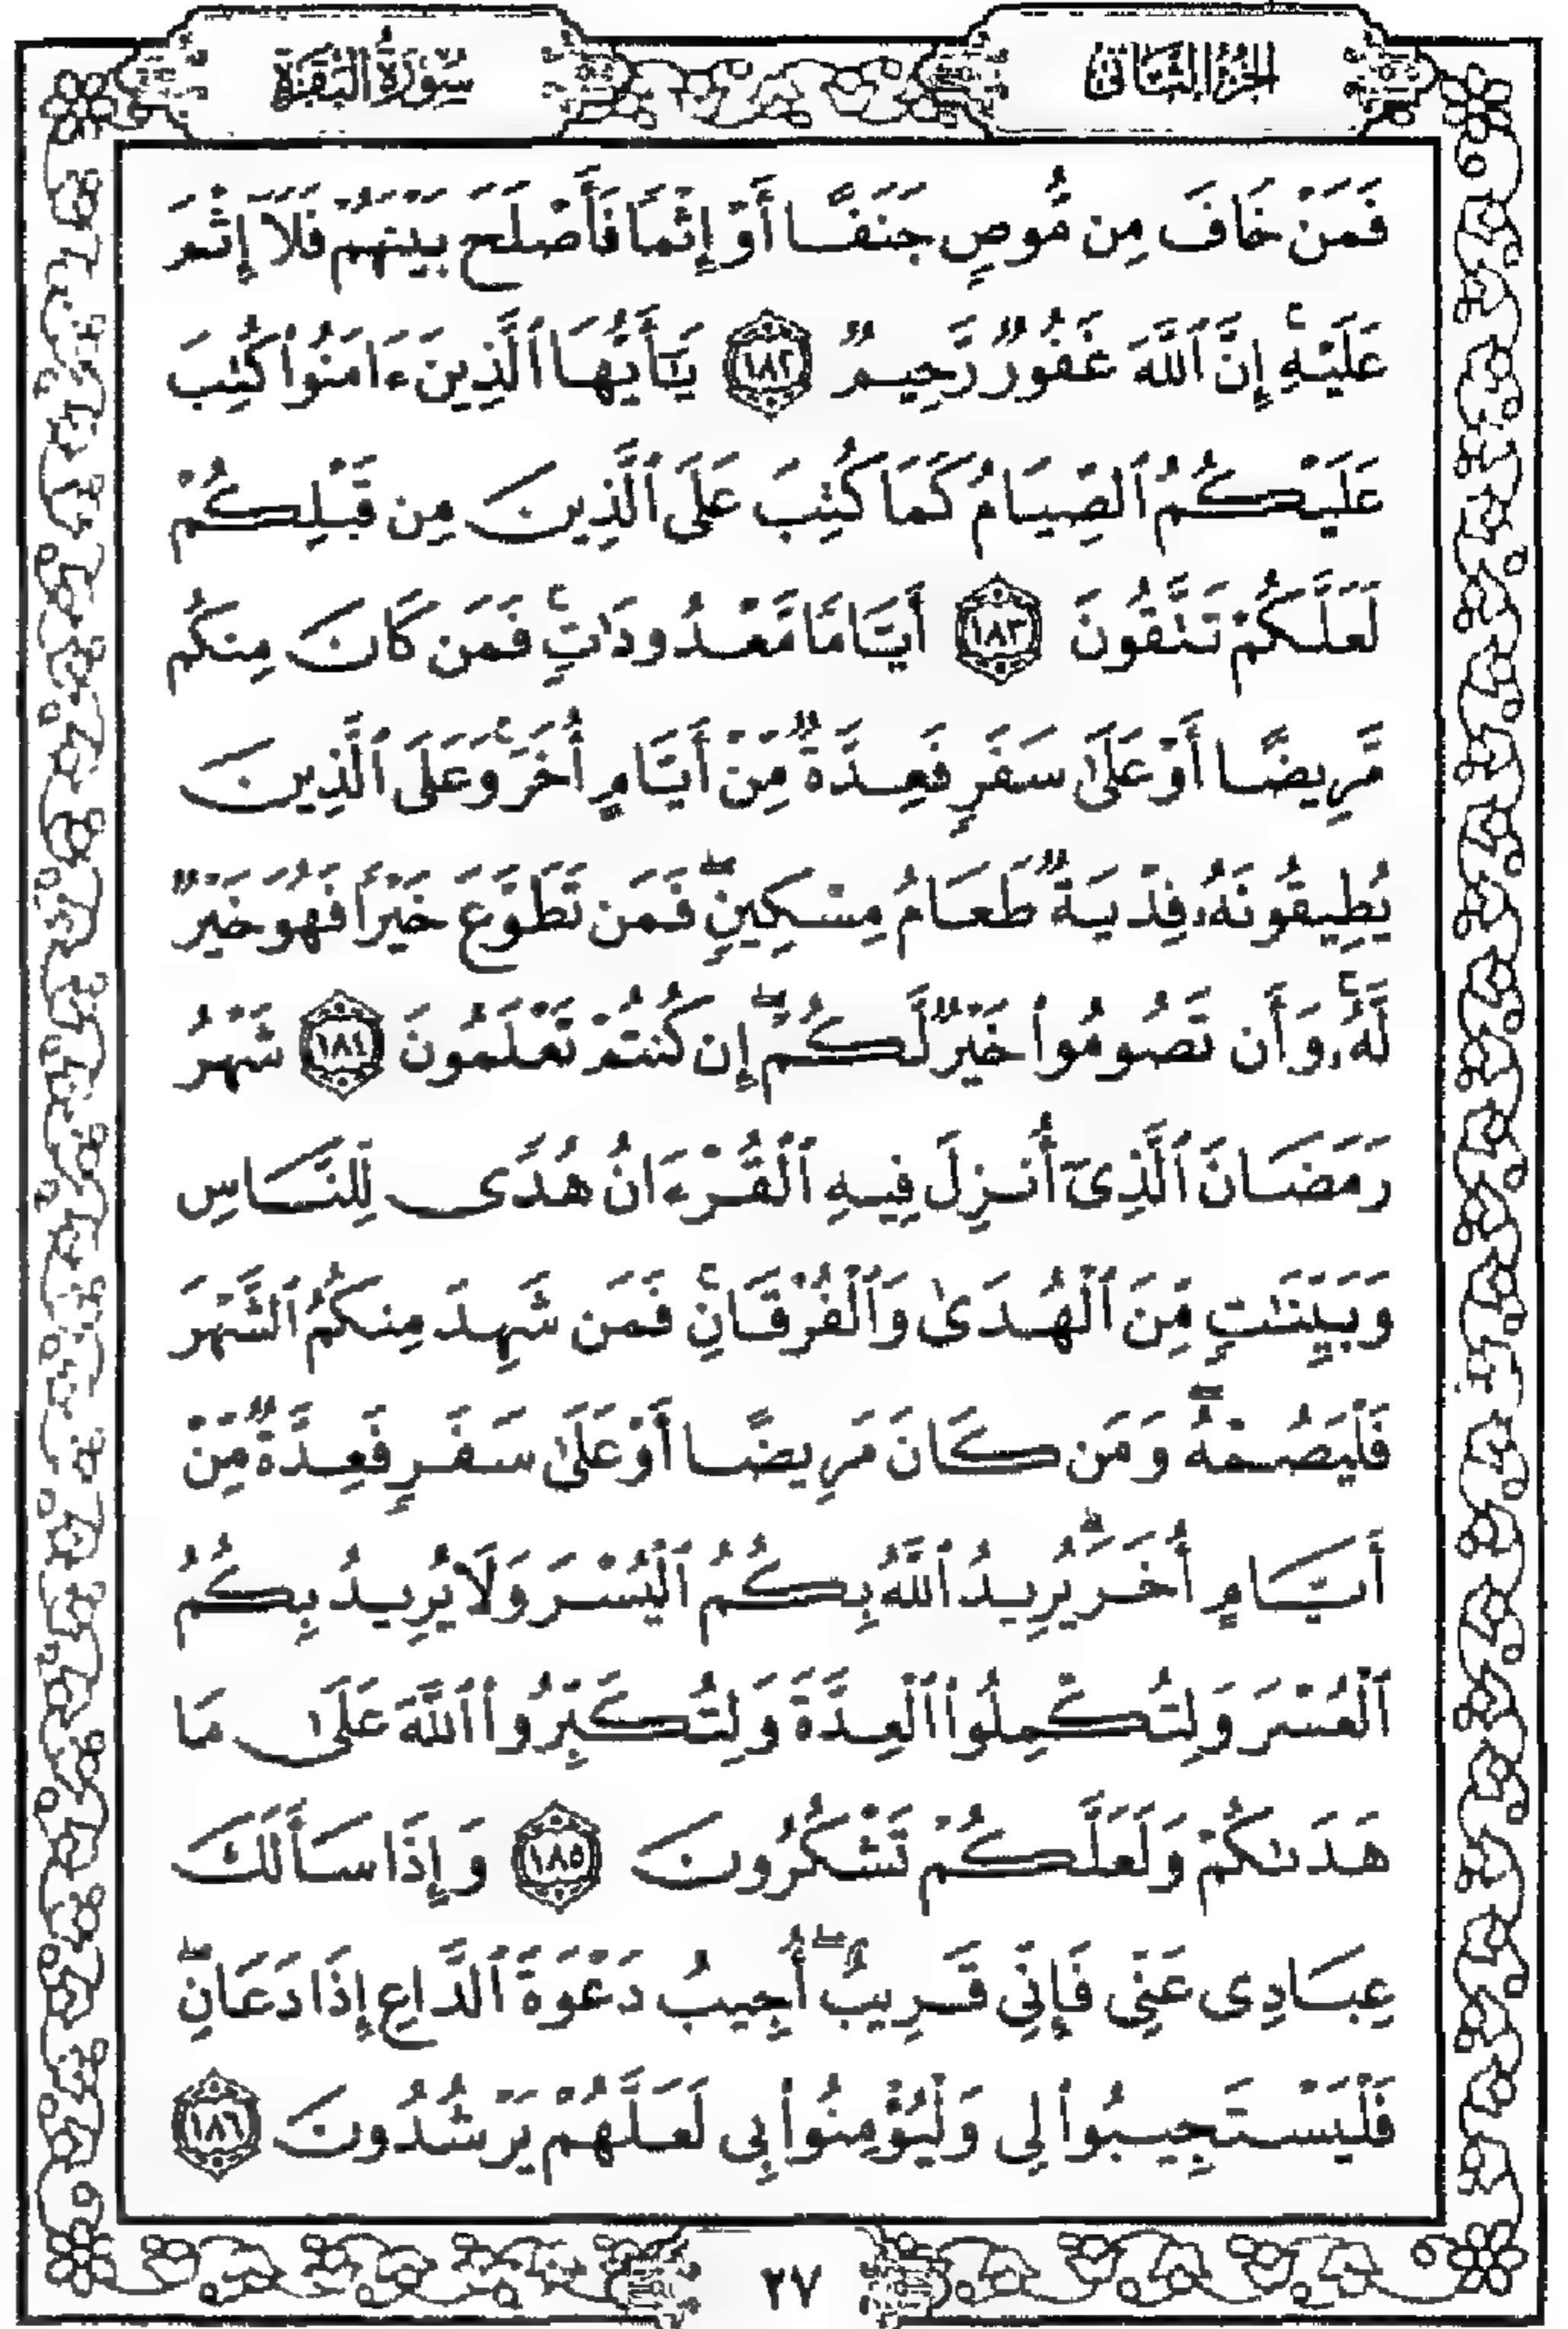 الجزء الثاني
سورة البقرة
فَمَنْ خَافَ مِن مُّوصٍ جَنَفًا أَوْ إِثْمًا فَأَصْلَحَ بَيْنَهُمْ فَلَآ إِثْمَ
عَلَيْهِ ۚ إِنَّ ٱللَّهَ غَفُورٌ رَّحِيمٌ ١٨٢ يَٰٓأَيُّهَا ٱلَّذِينَ ءَامَنُوا۟ كُتِبَ
عَلَيْكُمُ ٱلصِّيَامُ كَمَا كُتِبَ عَلَى ٱلَّذِينَ مِن قَبْلِكُمْ
لَعَلَّكُمْ تَتَّقُونَ ١٨٣ أَيَّامًا مَّعْدُودَٰتٍ ۚ فَمَن كَانَ مِنكُم
مَّرِيضًا أَوْ عَلَىٰ سَفَرٍ فَعِدَّةٌ مِّنْ أَيَّامٍ أُخَرَ ۚ وَعَلَى ٱلَّذِينَ
يُطِيقُونَهُۥ فِدْيَةٌ طَعَامُ مِسْكِينٍ ۖ فَمَن تَطَوَّعَ خَيْرًا فَهُوَ خَيْرٌ
لَّهُۥ ۚ وَأَن تَصُومُوا۟ خَيْرٌ لَّكُمْ ۖ إِن كُنتُمْ تَعْلَمُونَ ١٨٤ شَهْرُ
رَمَضَانَ ٱلَّذِىٓ أُنزِلَ فِيهِ ٱلْقُرْءَانُ هُدًى لِّلنَّاسِ
وَبَيِّنَٰتٍ مِّنَ ٱلْهُدَىٰ وَٱلْفُرْقَانِ ۚ فَمَن شَهِدَ مِنكُمُ ٱلشَّهْرَ
فَلْيَصُمْهُ ۖ وَمَن كَانَ مَرِيضًا أَوْ عَلَىٰ سَفَرٍ فَعِدَّةٌ مِّنْ
أَيَّامٍ أُخَرَ ۗ يُرِيدُ ٱللَّهُ بِكُمُ ٱلْيُسْرَ وَلَا يُرِيدُ بِكُمُ
ٱلْعُسْرَ وَلِتُكْمِلُوا۟ ٱلْعِدَّةَ وَلِتُكَبِّرُوا۟ ٱللَّهَ عَلَىٰ مَا
هَدَىٰكُمْ وَلَعَلَّكُمْ تَشْكُرُونَ ١٨٥ وَإِذَا سَأَلَكَ
عِبَادِى عَنِّى فَإِنِّى قَرِيبٌ ۖ أُجِيبُ دَعْوَةَ ٱلدَّاعِ إِذَا دَعَانِ ۖ
فَلْيَسْتَجِيبُوا۟ لِى وَلْيُؤْمِنُوا۟ بِى لَعَلَّهُمْ يَرْشُدُونَ ١٨٦
٢٧